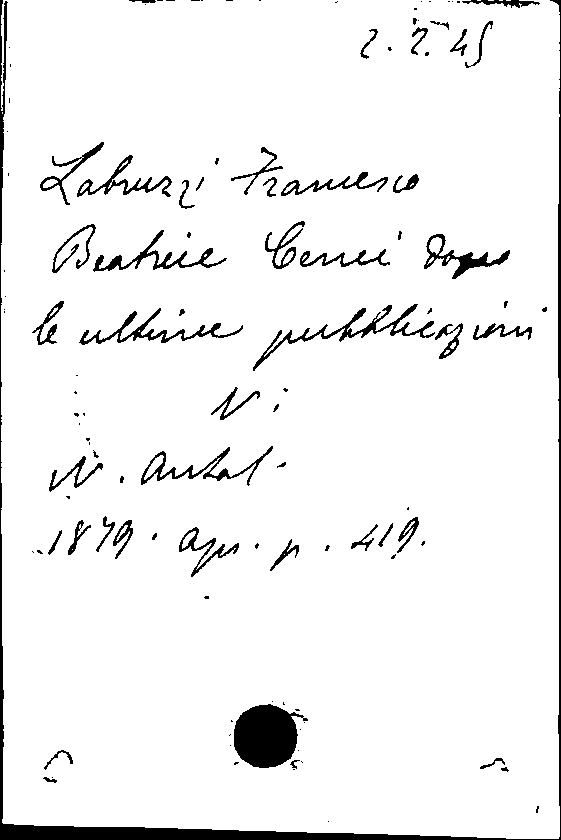 2. 2. 45
Labruzzi Francesco
Beatrice Cenci dopo
le ultime pubblicazioni
N:
N. Antol.
1879. apr. p. 419.